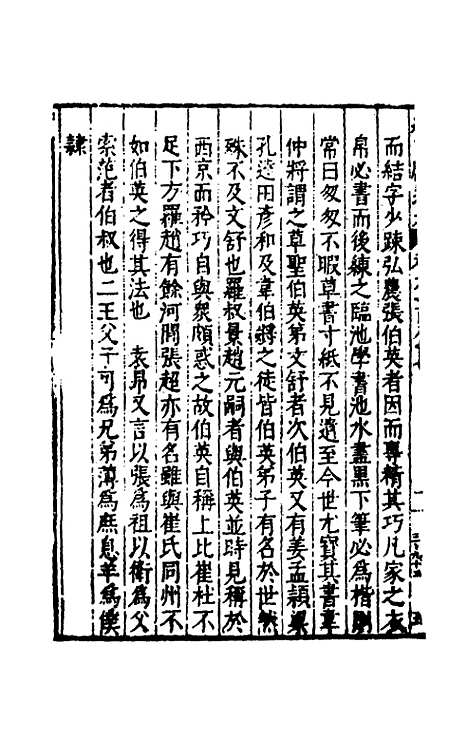 而結字少踈弘農張伯英者因而專精其巧凡家之衣
帛必書而後練之臨池學書池水盡黑下筆必為楷則
常曰匆匆不暇草書寸紙不見遺至今世尤寶其書韋
仲將謂之草聖伯英弟文舒者次伯英又有姜孟潁梁
孔達田彥和及韋仲將之徒皆伯英弟子有名於世然
殊不及文舒也羅叔景趙元嗣者與伯英並時見稱於
西京而矜巧自與衆頗惑之故伯英自稱上比崔杜不
足下方羅趙有餘河閒張超亦有名雖與崔氏同州不
如伯英之得其法也　袁昂又言以張為祖以衛為父
索范者伯叔也二王父子可為兄弟薄為庶息羊為僕
隸